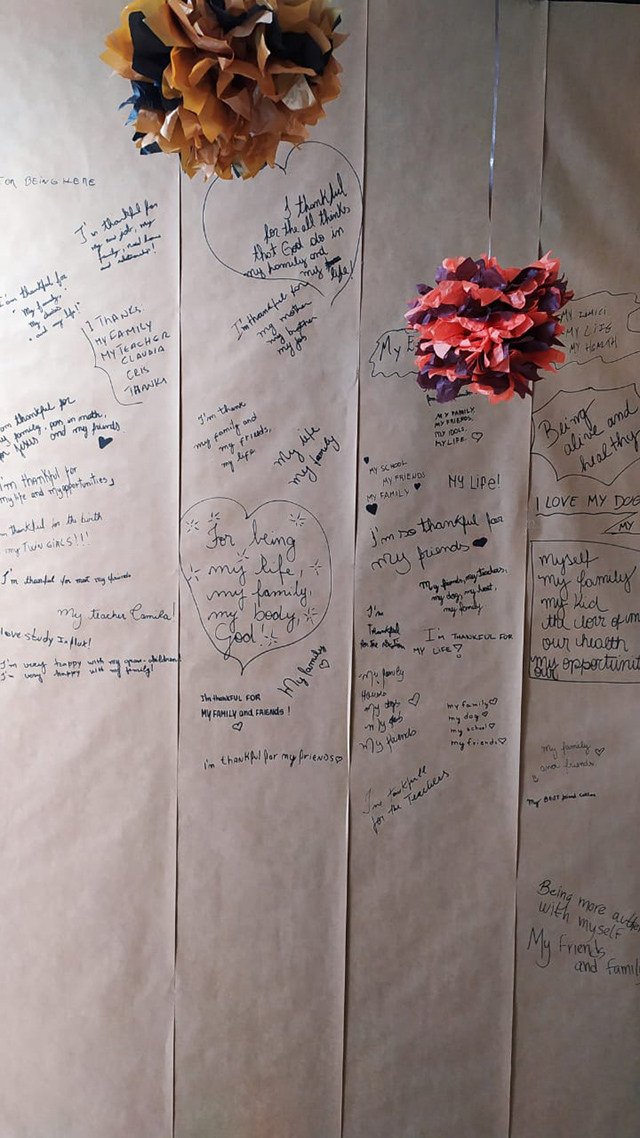 FOR BEING HERE
I'm thankful for
my family, and home
I'm thankful for
My family,
and my life!
I THANKS
MY FAMILY
MY TEACHER
CLAUDIA
CRIS
THANKS
thankful for
family,
and my friends
I'm thankful for
my life and my opportunities,
thankful in the birth
my TWIN GIRLS!!!
I'm thankful for meet my friends
My teacher Camila!
love study Influx!
I'm very happy with my
I'm very happy with my family!
I thankful
for the all thinks
that God do in
my family and
my life!
I'm thankful for
my mother
my brother
my job
I'm thank
my family and
my friends,
my life
My life
my family
For being
my life,
my family,
my body,
God!
My family
I'm THANKFUL FOR
MY FAMILY and FRIENDS !
i'm thankful for my friends
My
MY FAMILY,
MY FRIENDS,
MY IDOLS,
MY LIFE.
MY SCHOOL
MY FRIENDS
MY FAMILY
MY LIFE!
I'm so thankful for
My friends
My friends, my teachers,
my dog, my
my family.
I'm
Thankful
I'm THANKFUL FOR
MY LIFE!
My family
House
My dogs
My job
My friends
my family
my dog
my school
my friends
for the Teachers
MY LIFE
MY HEALTH
Being
alive and
healthy
I LOVE MY DOG
MY
myself
my family
my kid
our health
my
our
My family
and friends.
My
Being more
with myself
My Friends
and family